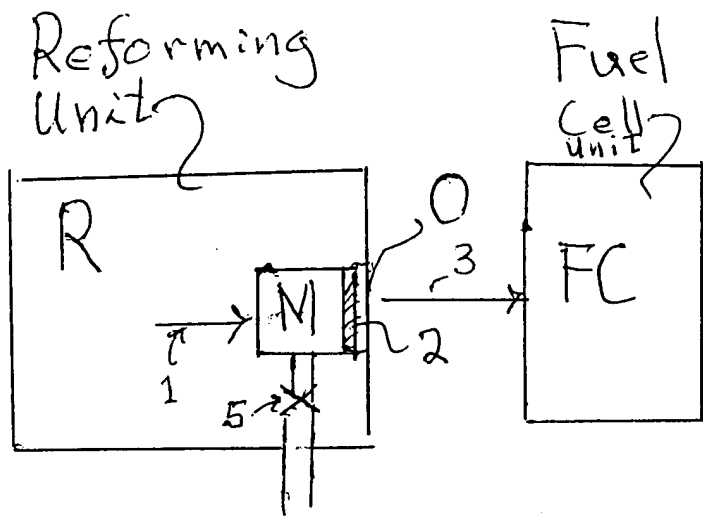 Reforming
Unit
Fuel
Cell
Unit
R
O
3
FC
M
2
1
5